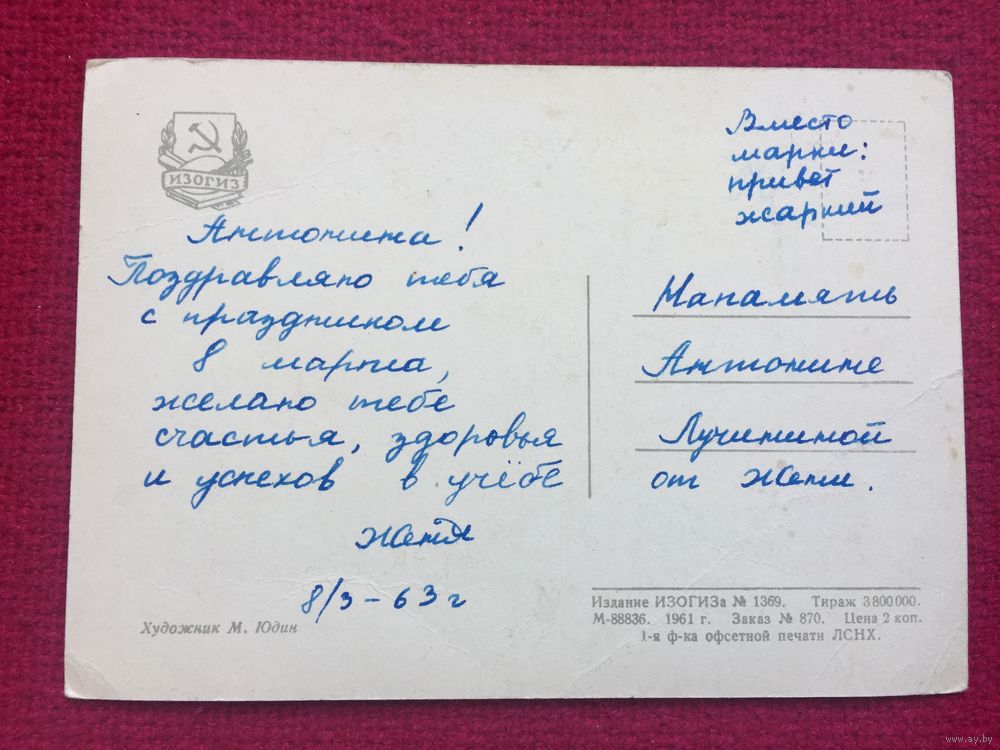 ИЗОГИЗ
Вместо
марки:
привет
жаркий
Антонина!
Поздравляю тебя
с праздником
8 марта,
желаю тебе
счастья, здоровья
и успехов в учёбе
Женя
8/3-63 г
Художник М. Юдин
Напамять
Антонине
Лучининой
от Жени.
Издание ИЗОГИЗа № 1369. Тираж 3 800 000.
М-88836. 1961 г. Заказ № 870. Цена 2 коп.
1-я ф-ка офсетной печати ЛСНХ.
www.ay.by